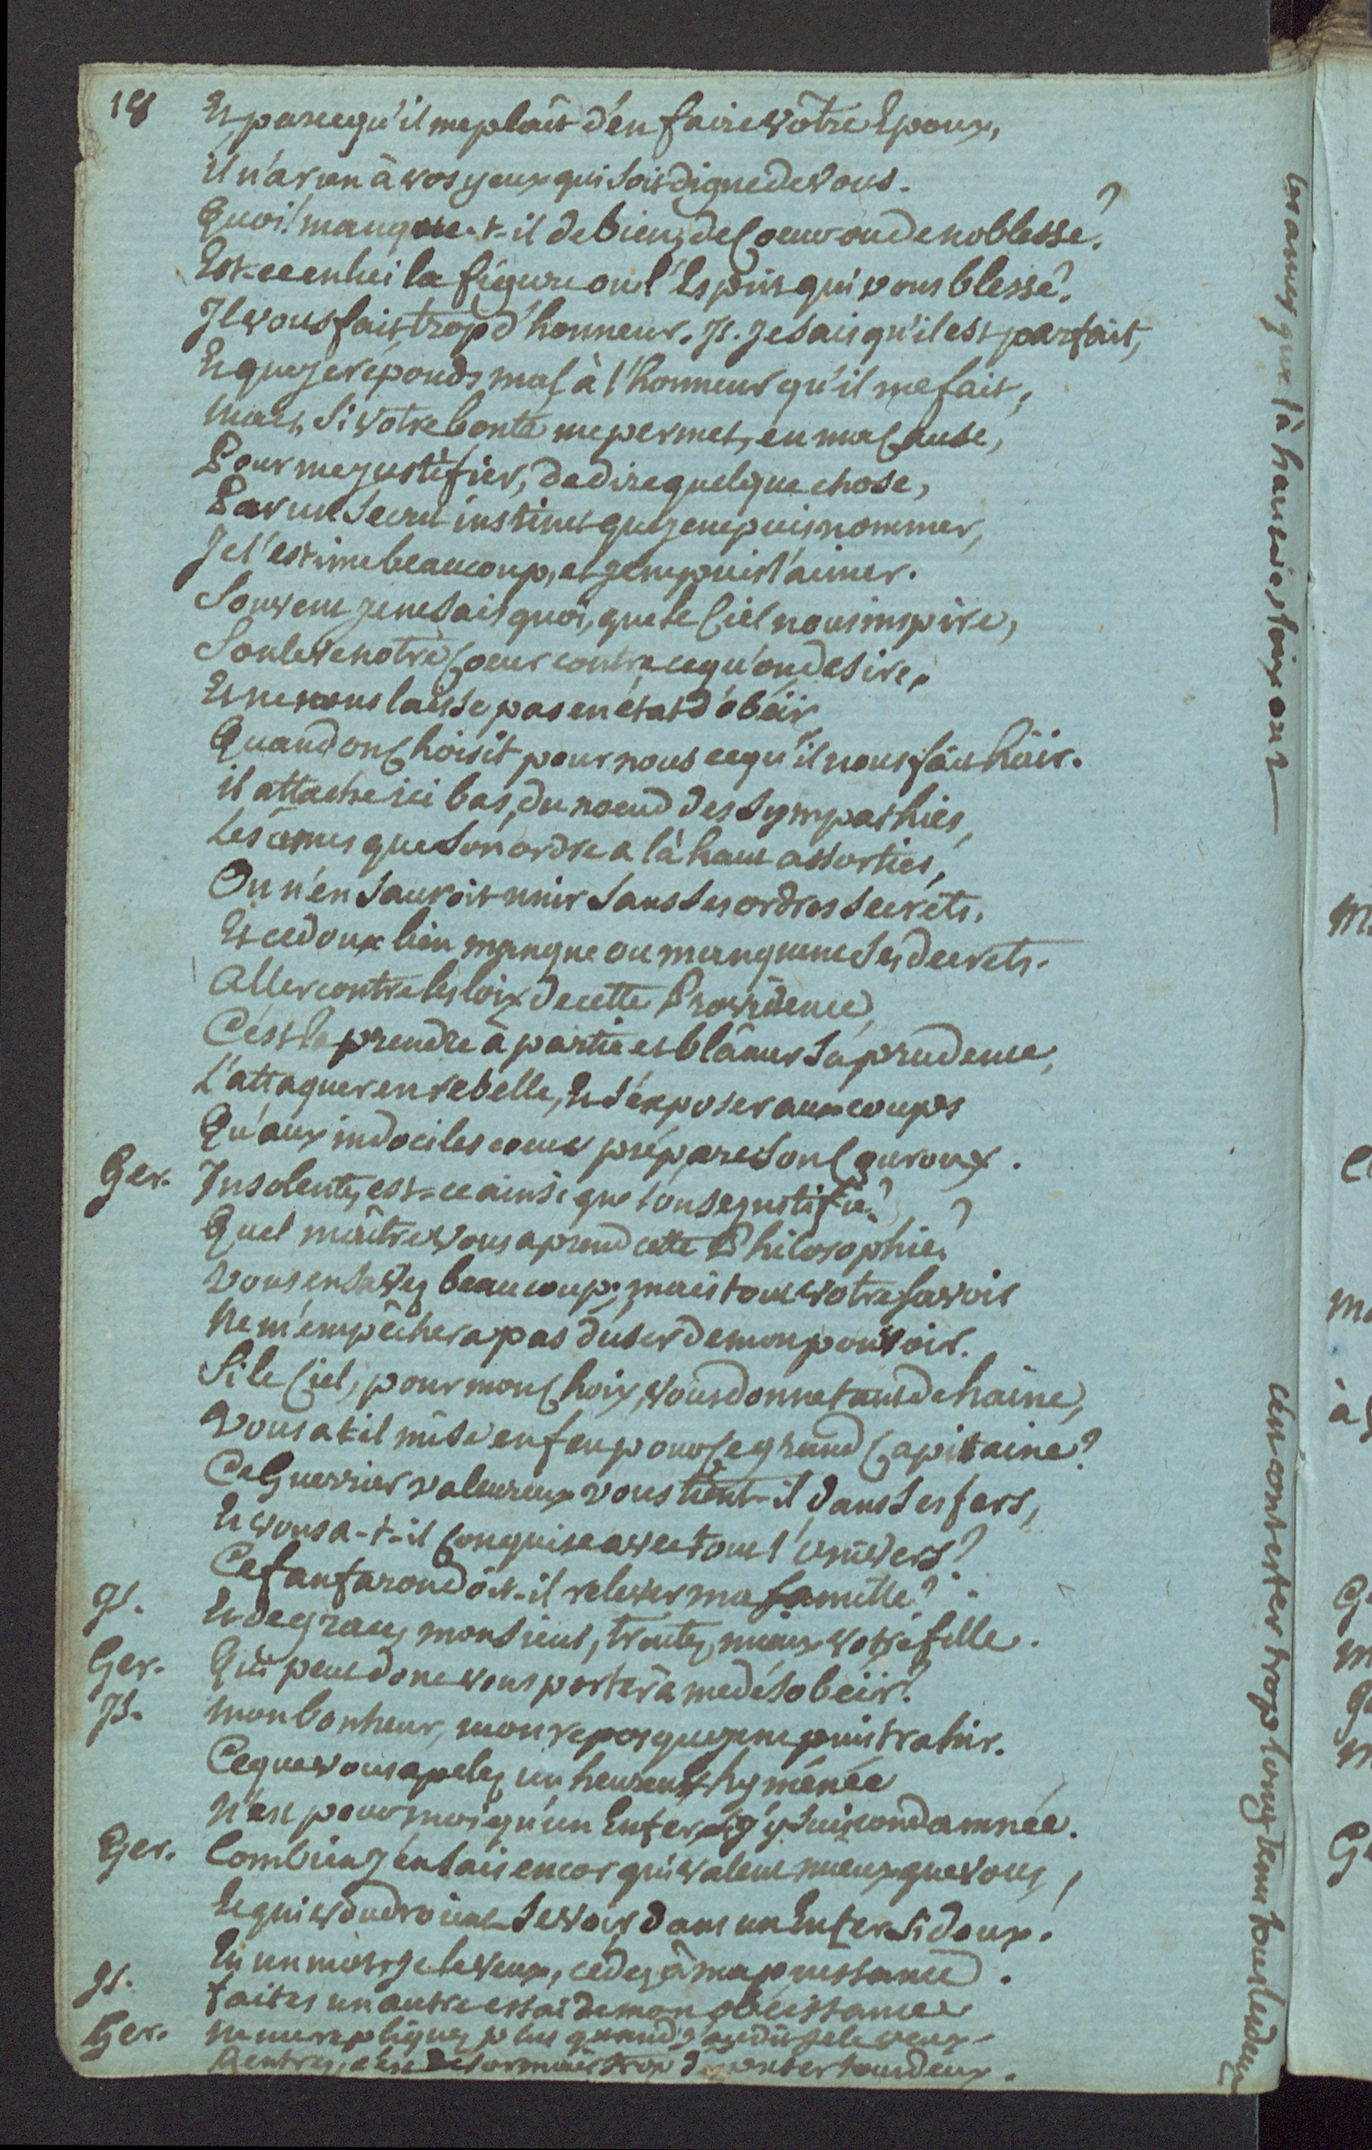 18
Et parcequ'il me plaît d'en faire vôtre Epoux,
il n'a rien à vos yeux qui soit digne de vous.
Quoi! manque-t-il de bien, de Coeur ou de noblesse?
Est-ce en lui la figure ou l'Esprit qui vous blesse?
Il vous fait trop d'honneur. Is. Je sais qu'il est parfait,
Et que je réponds mal à l'honneur qu'il me fait,
mais, si votre bonté me permet, en ma Cause,
Pour me justifier, de dire quelque chose,
Par un secret instinct que je ne puis nommer,
Je l'estime beaucoup, et je ne puis l'aimer.
Souvent je ne sais quoi, que le Ciel nous inspire,
Souleve notre Coeur contre ce qu'on desire,
Et ne nous laisse pas en état d'obéir,
Quand on Choisit pour nous ce qu'il nous fait haïr.
il attache ici bas, du noeud des sympathies,
Les âmes que son ordre a là haut assorties,
On n'en sauroit unir sans ses ordres secrets,
Et ce doux lien manque ou manquent ses decrets.
Aller contre les loix de cette Providence,
C'est la prendre à partie et blâmer sa prudence,
L'attaquer en rebelle, Et s'exposer aux coups
Qu'aux indociles coeurs prépare son Couroux.
Ger. Insolente, est-ce ainsi que l'on se justifie?
Quel maître vous aprend cette Philosophie?
vous en savez beaucoup; mais tout votre savoir
Ne m'empêchera pas d'user de mon pouvoir.
Si le Ciel, pour mon Choix, vous donne tant de haine,
Vous a t-il mise en feu pour Ce grand Capitaine?
Ce Guerrier valeureux vous tient-il dans ses fers,
Et vous a-t-il Conquise avec tout l'univers?
Ce fanfaron doit-il relever ma famille?
Is. Et de grace, monsieur, traitez mieux votre fille.
Ger. Qui peut donc vous porter à me désobéir?
Is. Mon bonheur, mon repos que je ne puis trahir.
Ce que vous apelez un heureux hyménée
N'est pour moi qu'un Enfer, si j'y suis condamnée.
Ger. Combien j'en sais encor qui valent mieux que vous,
Et qui voudroient se voir dans un Enfer si doux.
En un mot je le veux, cédez à ma puissance.
Is. faites un autre essai de mon obéissance
Ger. Ne me repliquez plus quand j'ai dit je le veux.
Rentrez, c'est désormais trop
les ames que là haut
contester trop longtems tous les deux